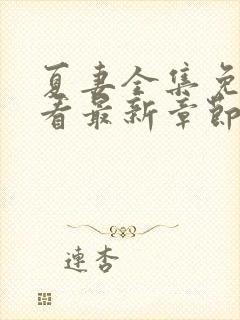 夏妻全集免
看最新章節
連杏